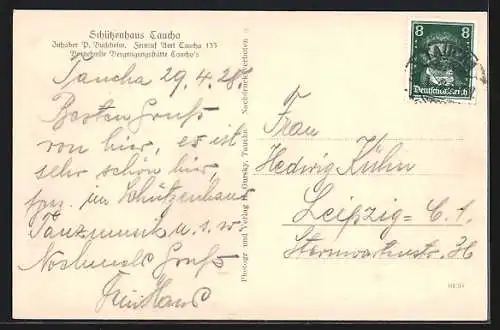 Schützenhaus Taucha
Inhaber P. Fernruf Amt Taucha 135
Vergnügungsstätte Taucha's
Taucha 29.4.28.
Besten Gruß
von hier, es ist
sehr schön hier,
im Schützenhaus
Tanzmusik u.s.w
Nochmals Gruß
Hans
Photogr. und Verlag H. Gursky, Taucha. Nachdruck verboten
8 8
Deutsches Reich
TAUCHA
Frau
Hedwig Kühn
Leipzig= C. 1.
Sternwartenstr.